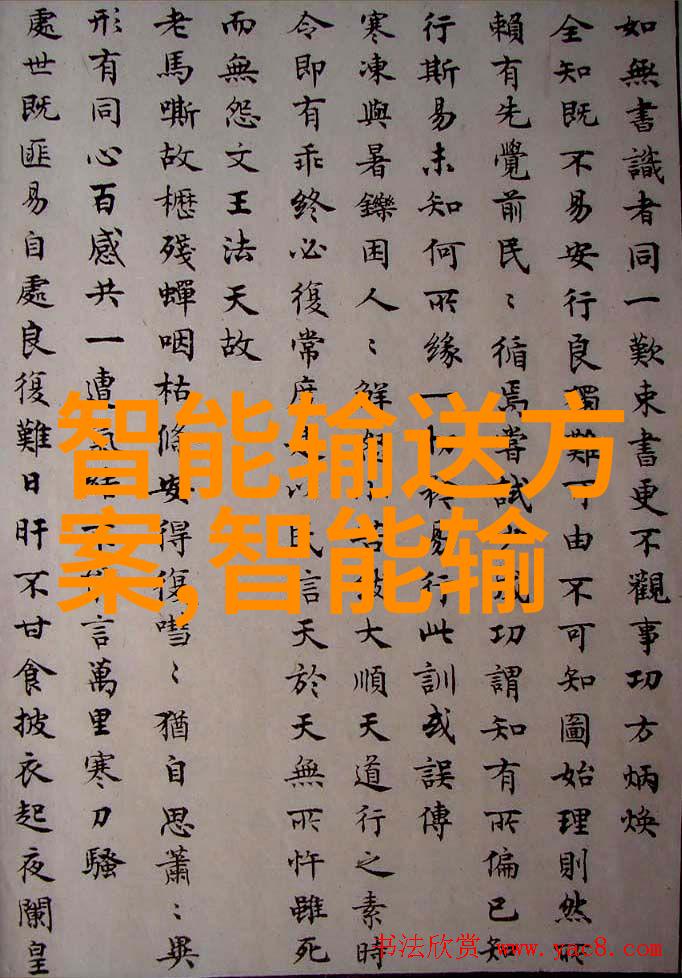 如無書識者同一歎束書更不觀事功方炳煥
全知既不易安行良獨難可由不可知圖始理則然所
賴有先覺前民〻循焉嘗試成功謂知有所偏已知
行斯易未知何所緣一易行此訓或誤傳
寒凍與暑鑠困人〻鮮大順天道行之素時
令即有乖終必復常度以民言天於天無所忤雖死
而無怨文王法天故
老馬嘶故櫪殘蟬咽枯條安得復嘒〻猶自思蕭〻異
形有同心百感共一遭不言萬里寒刀騷
處世既匪易自處良復難日肝不甘食披衣起夜闌皇
智能输送方
案,智能输
书法欣赏 www.yac8.com